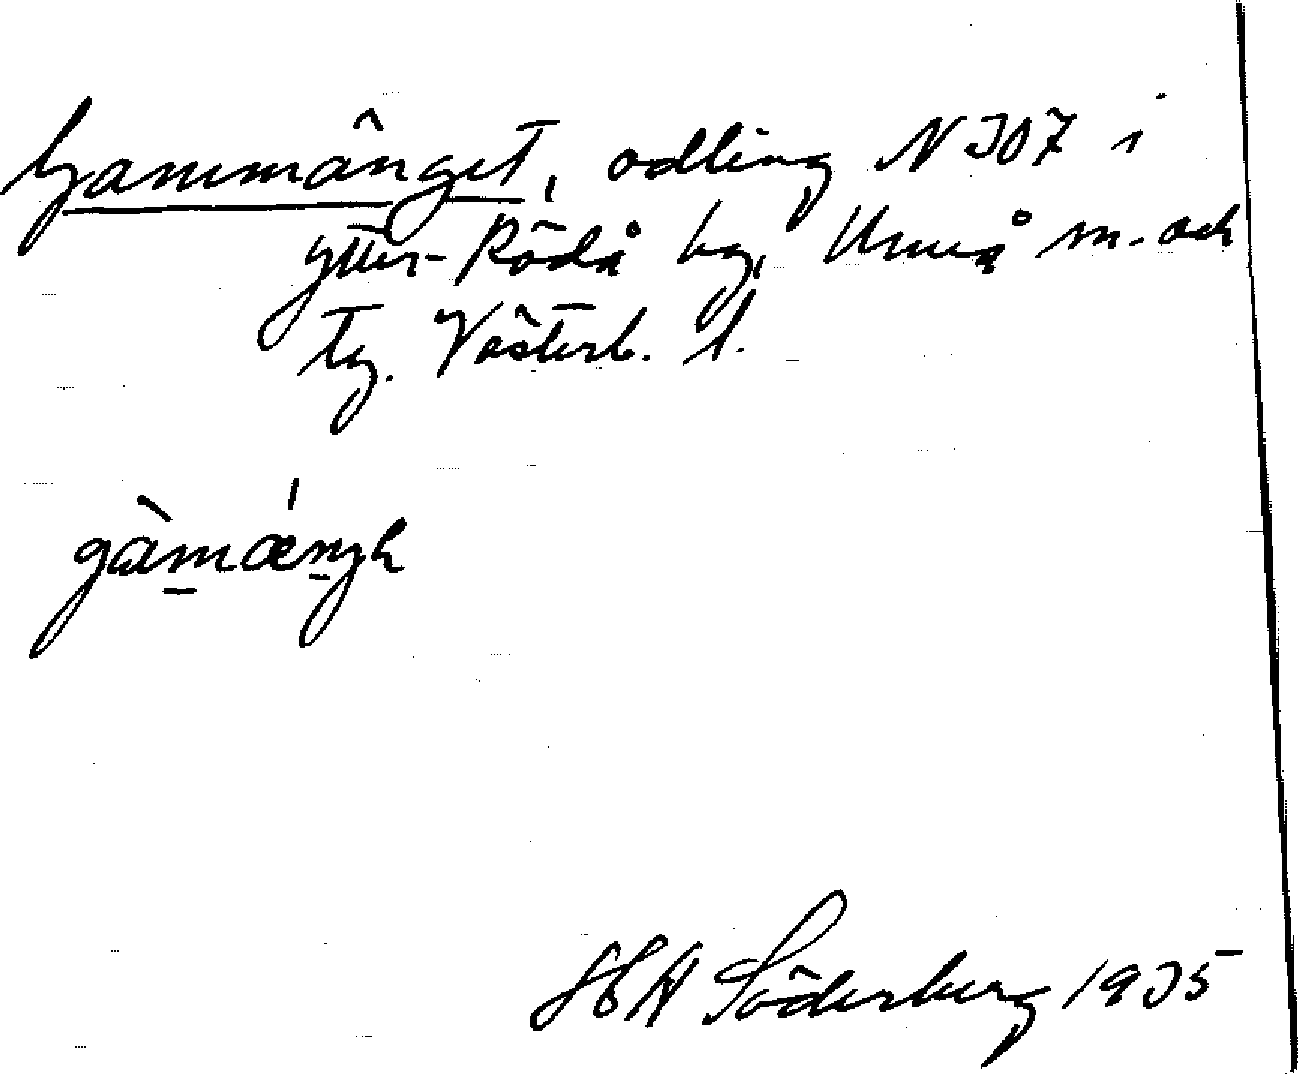 Gammänget, odling N 307 i
Ytter-Rödå by, Umeå sn. och
tg. Västerb. l.
gàmǽngh
H Söderberg 1935